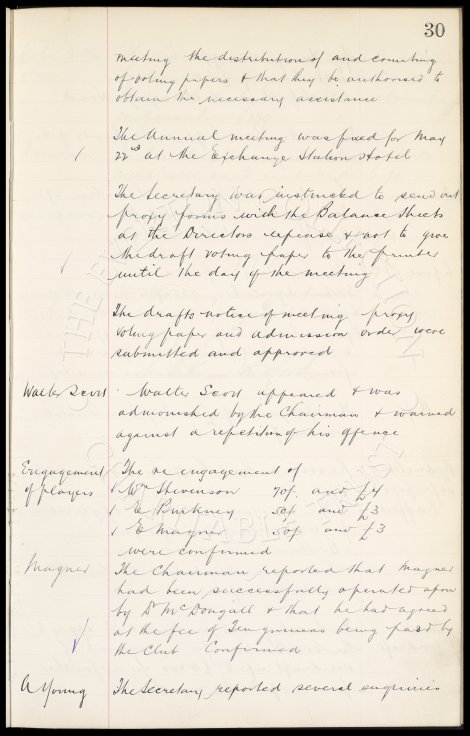 30
meeting the distribution of and counting
of voting papers & that they be authorised to
obtain the necessary assistance
The Annual meeting was fixed for May
22nd at the Exchange Station Hotel
The Secretary was instructed to send out
proxy forms with the Balance Sheets
at the Directors expense & not to give
the draft voting paper to the printer
until the day of the meeting
The draft notice of meeting proxy
voting paper and admission order were
submitted and approved
Walter Scott Walter Scott appeared & was
admonished by the Chairman & warned
against a repetition of his offence
Engagement The re engagement of
of players Wm Stevenson 70/- and £4
E Pinkney 50/- and £3
E Magner 50/- and £3
were confirmed
Magner The Chairman reported that Magner
had been successfully operated upon
by Dr McDougall & that he had agreed
at the fee of Ten guineas being paid by
the Club Confirmed
A Young The Secretary reported several enquiries